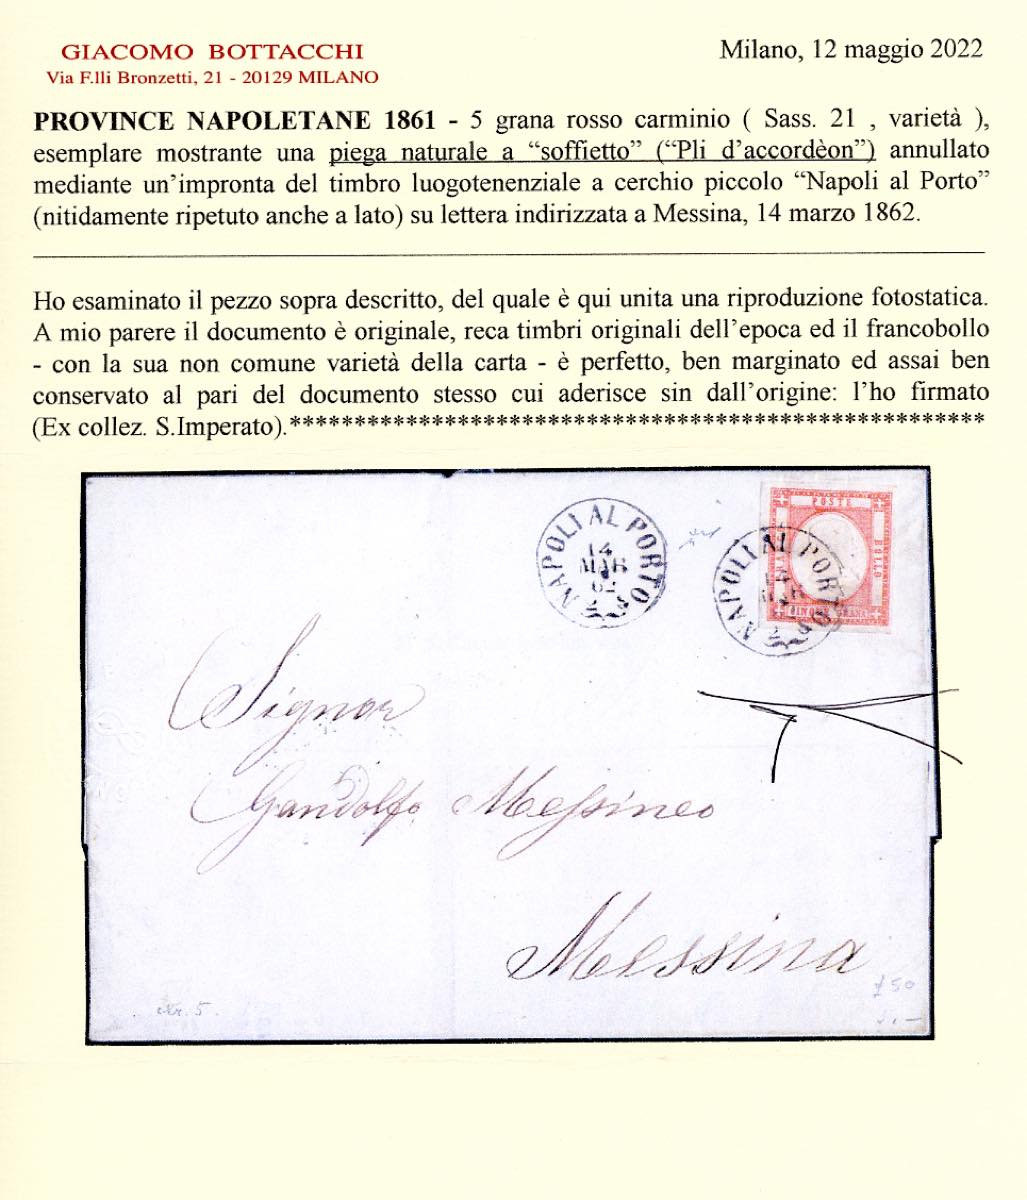 GIACOMO BOTTACCHI
Via F.lli Bronzetti, 21 - 20129 MILANO
Milano, 12 maggio 2022
PROVINCE NAPOLETANE 1861 - 5 grana rosso carminio ( Sass. 21 , varietà ),
esemplare mostrante una piega naturale a “soffietto” (“Pli d’accordèon”) annullato
mediante un’impronta del timbro luogotenenziale a cerchio piccolo “Napoli al Porto”
(nitidamente ripetuto anche a lato) su lettera indirizzata a Messina, 14 marzo 1862.
Ho esaminato il pezzo sopra descritto, del quale è qui unita una riproduzione fotostatica.
A mio parere il documento è originale, reca timbri originali dell’epoca ed il francobollo
- con la sua non comune varietà della carta - è perfetto, ben marginato ed assai ben
conservato al pari del documento stesso cui aderisce sin dall’origine: l’ho firmato
(Ex collez. S.Imperato).******************************************************
NAPOLI AL PORTO
14
MAR
62
POSTE
BOLLO
NAPOLI AL PORTO
Signor
Gandolfo Messineo
Messina
£50